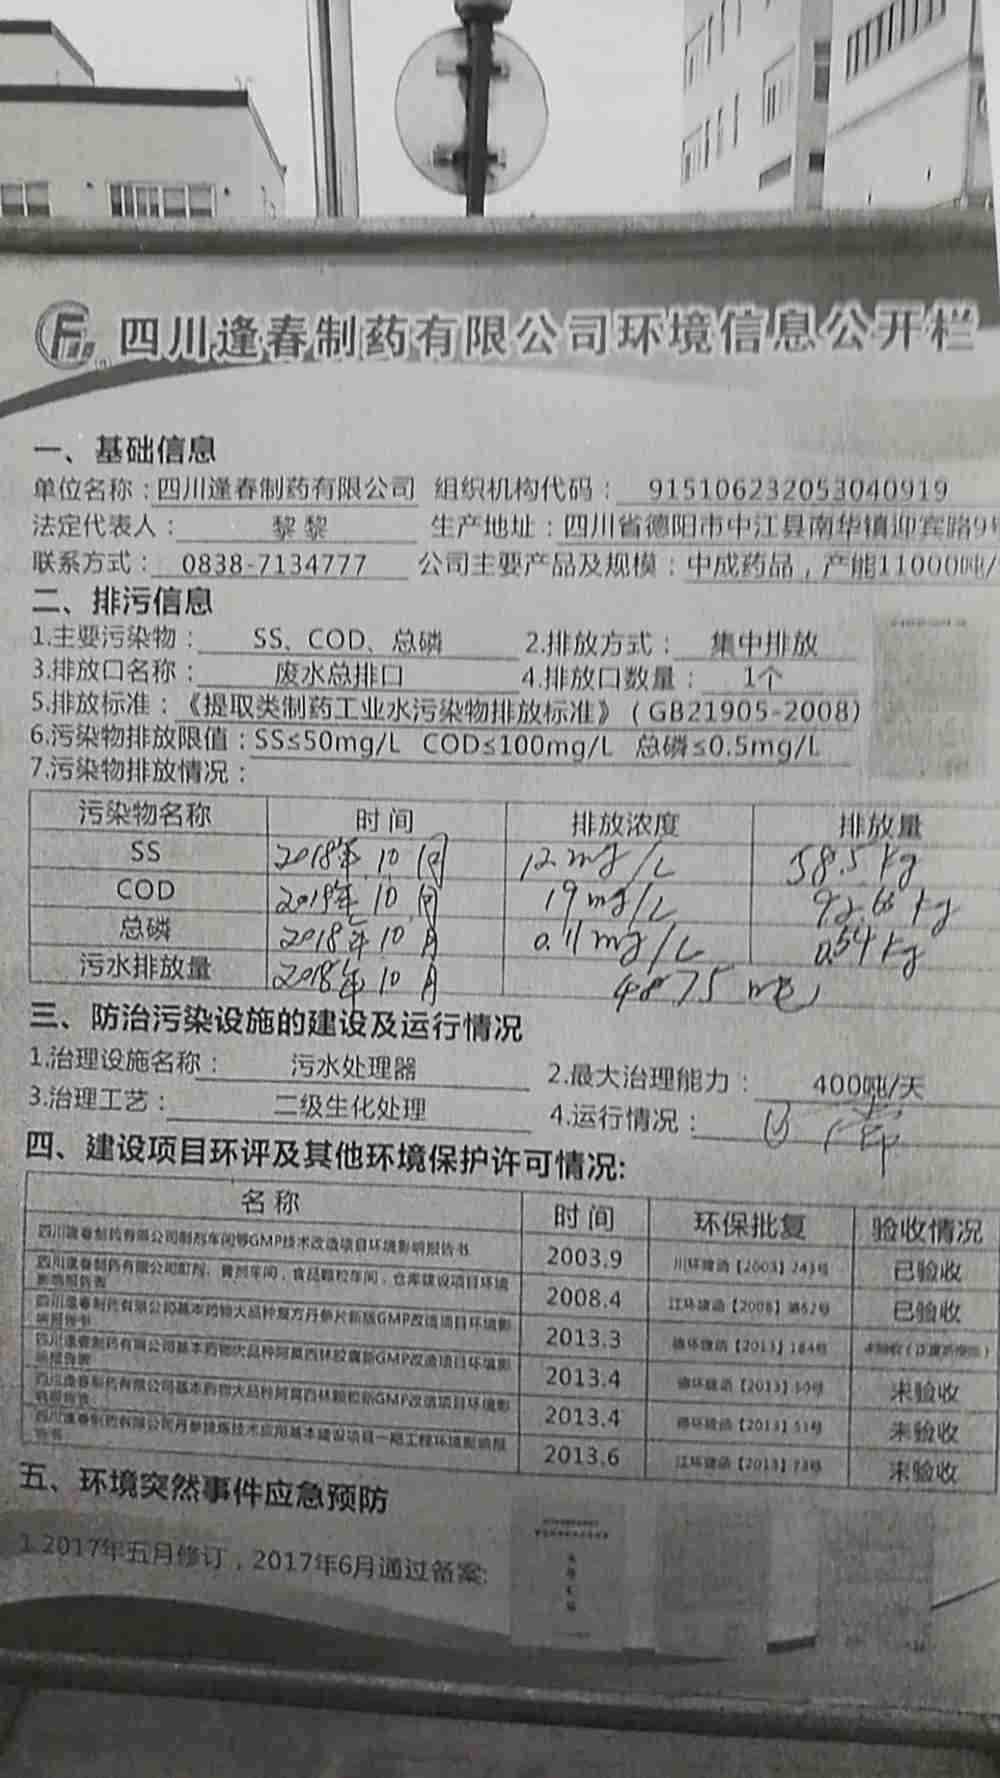 四川逢春制药有限公司环境信息公开栏
一、基础信息
单位名称：四川逢春制药有限公司 组织机构代码： 915106232053040919
法定代表人： 黎黎 生产地址：四川省德阳市中江县南华镇迎宾路9
联系方式： 0838-7134777 公司主要产品及规模：中成药品，产能11000吨/
二、排污信息
1.主要污染物： SS、COD、总磷 2.排放方式： 集中排放
3.排放口名称： 废水总排口 4.排放口数量： 1个
5.排放标准：《提取类制药工业水污染物排放标准》（GB21905-2008）
6.污染物排放限值：SS≤50mg/L COD≤100mg/L 总磷≤0.5mg/L
7.污染物排放情况：
污染物名称 时间 排放浓度 排放量
SS 2018年10月 12mg/L 58.5kg
COD 2018年10月 19mg/L 92.66kg
总磷 2018年10月 0.11mg/L 0.54kg
污水排放量 2018年10月 4875吨
三、防治污染设施的建设及运行情况
1.治理设施名称： 污水处理器 2.最大治理能力： 400吨/天
3.治理工艺： 二级生化处理 4.运行情况：
四、建设项目环评及其他环境保护许可情况:
名称 时间 环保批复 验收情况
四川逢春制药有限公司制剂车间等GMP技术改造项目环境影响报告书 2003.9 川环建函【2003】243号 已验收
四川逢春制药有限公司酊剂、膏剂车间，食品颗粒车间，仓库建设项目环境影响报告表 2008.4 江环建函【2008】第62号 已验收
四川逢春制药有限公司基本药物大品种复方丹参片新版GMP改造项目环境影响报告书 2013.3 德环建函【2013】184号 未验收
四川逢春制药有限公司基本药物大品种阿莫西林胶囊新GMP改造项目环境影响报告表 2013.4 德环建函【2013】50号 未验收
四川逢春制药有限公司基本药物大品种阿莫西林颗粒新GMP改造项目环境影响报告表 2013.4 德环建函【2013】51号 未验收
四川逢春制药有限公司丹参提炼技术应用基本建设项目一期工程环境影响报告书 2013.6 江环建函【2013】73号 未验收
五、环境突然事件应急预防
1.2017年五月修订，2017年6月通过备案: